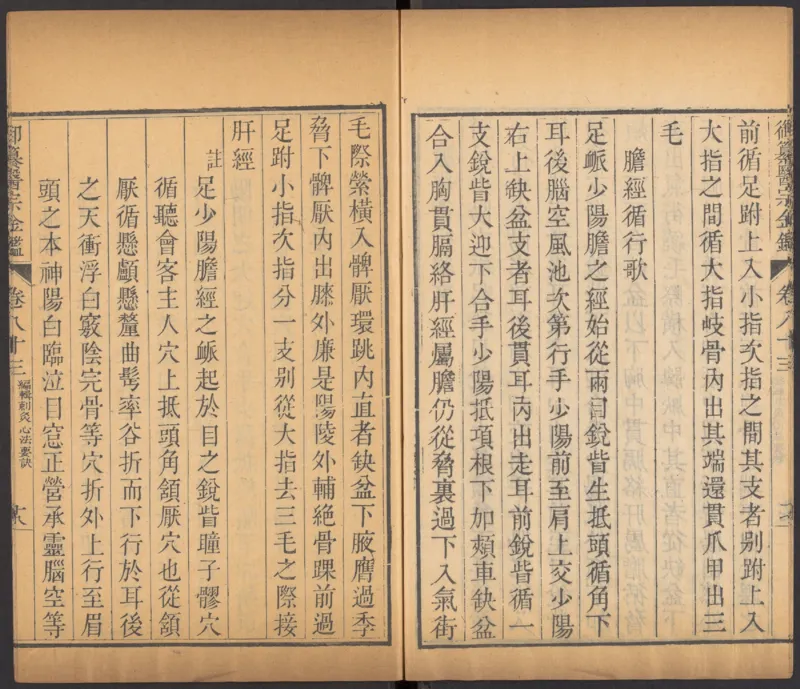 御纂醫宗金鑑 卷八十三
前循足跗上入小指次指之間其支者别跗上入
大指之間循大指岐骨內出其端還貫爪甲出三
毛
膽經循行歌
足脈少陽膽之經始從兩目銳眥生抵頭循角下
耳後腦空風池次第行手少陽前至肩上交少陽
右上缺盆支者耳後貫耳內出走耳前銳眥循一
支銳眥大迎下合手少陽抵項根下加頰車缺盆
合入胸貫膈絡肝經屬膽仍從脅裏過下入氣街
毛際縈橫入髀厭環跳內直者缺盆下腋膺過季
脅下髀厭內出膝外廉是陽陵外輔絕骨踝前過
足跗小指次指分一支别從大指去三毛之際接
肝經
註足少陽膽經之脈起於目之銳眥瞳子髎穴
循聽會客主人穴上抵頭角頷厭穴也從頷
厭循懸顱懸釐曲髩率谷折而下行於耳後
之天衝浮白竅陰完骨等穴折外上行至眉
頭之本神陽白臨泣目窓正營承靈腦空等
御纂醫宗金鑑 卷八十三 編輯刺灸心法要訣